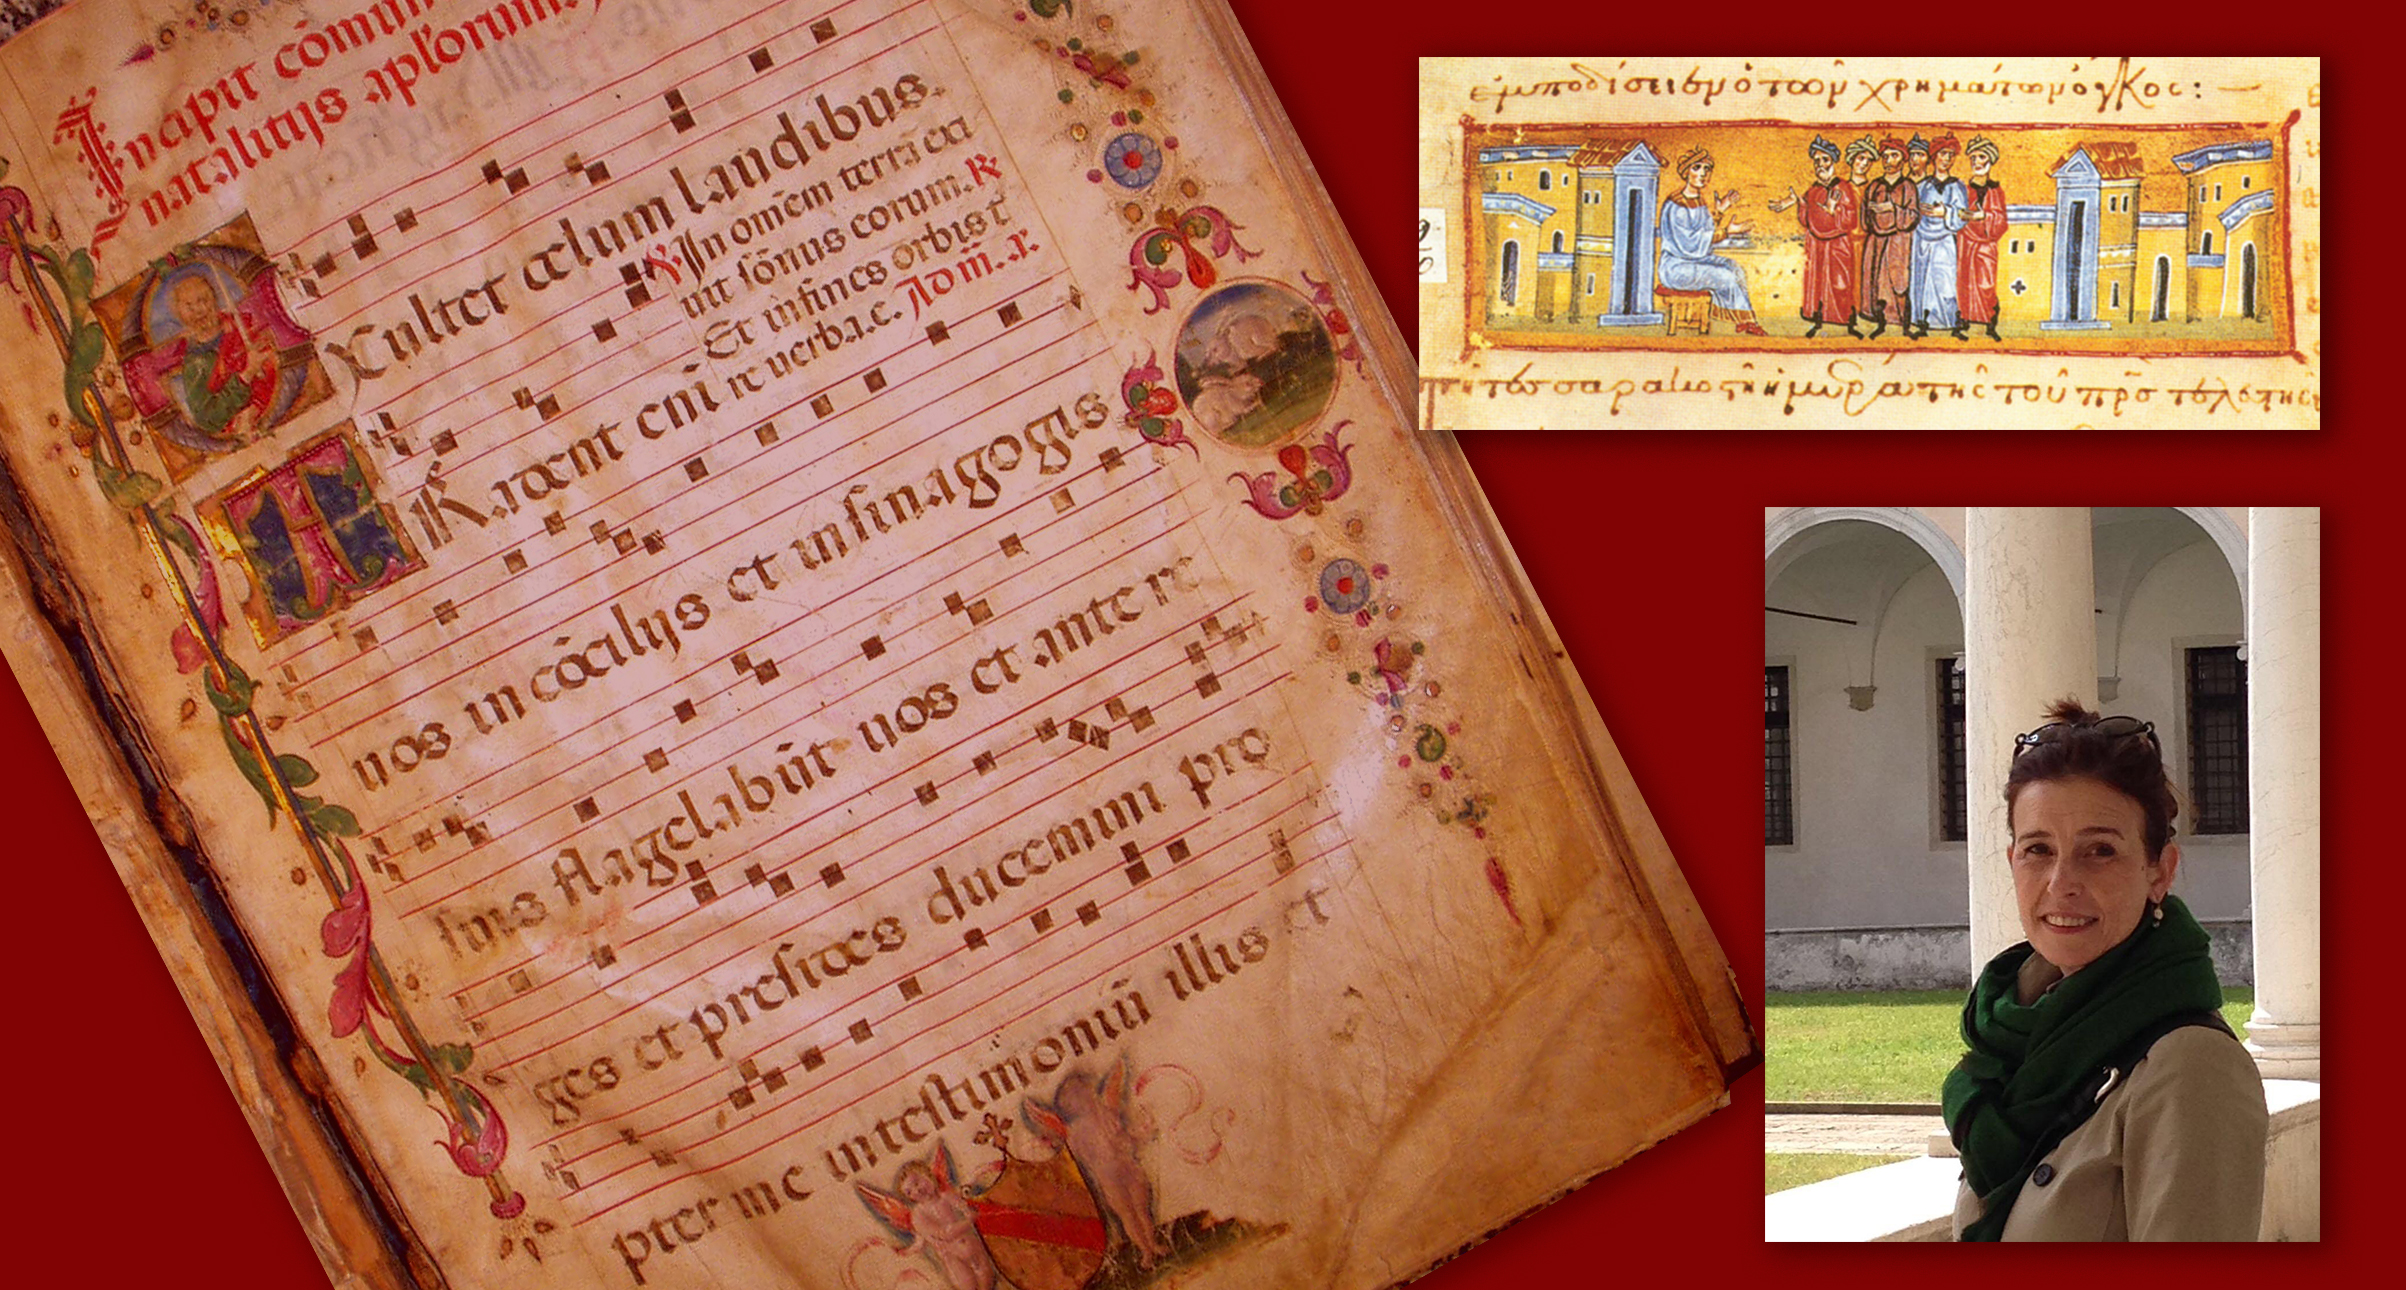 Incipit cōmun
natalitijs apl'orum.
Exultet celum laudibus.
℣. In omēm terrā exi
uit sonus eorum. ℟
Et in fines orbis t
re uerba.e. Ad m̄. a.
Tradent eni
uos in cōcilijs et in sinagogis
suis flagelabūt uos et ante re
ges et presides ducemini pro
pter me in testimoniū illis et
ἐμποδίσειεν ὁ τῶν χρημάτων ὄγκος: —
τοῦ πρς